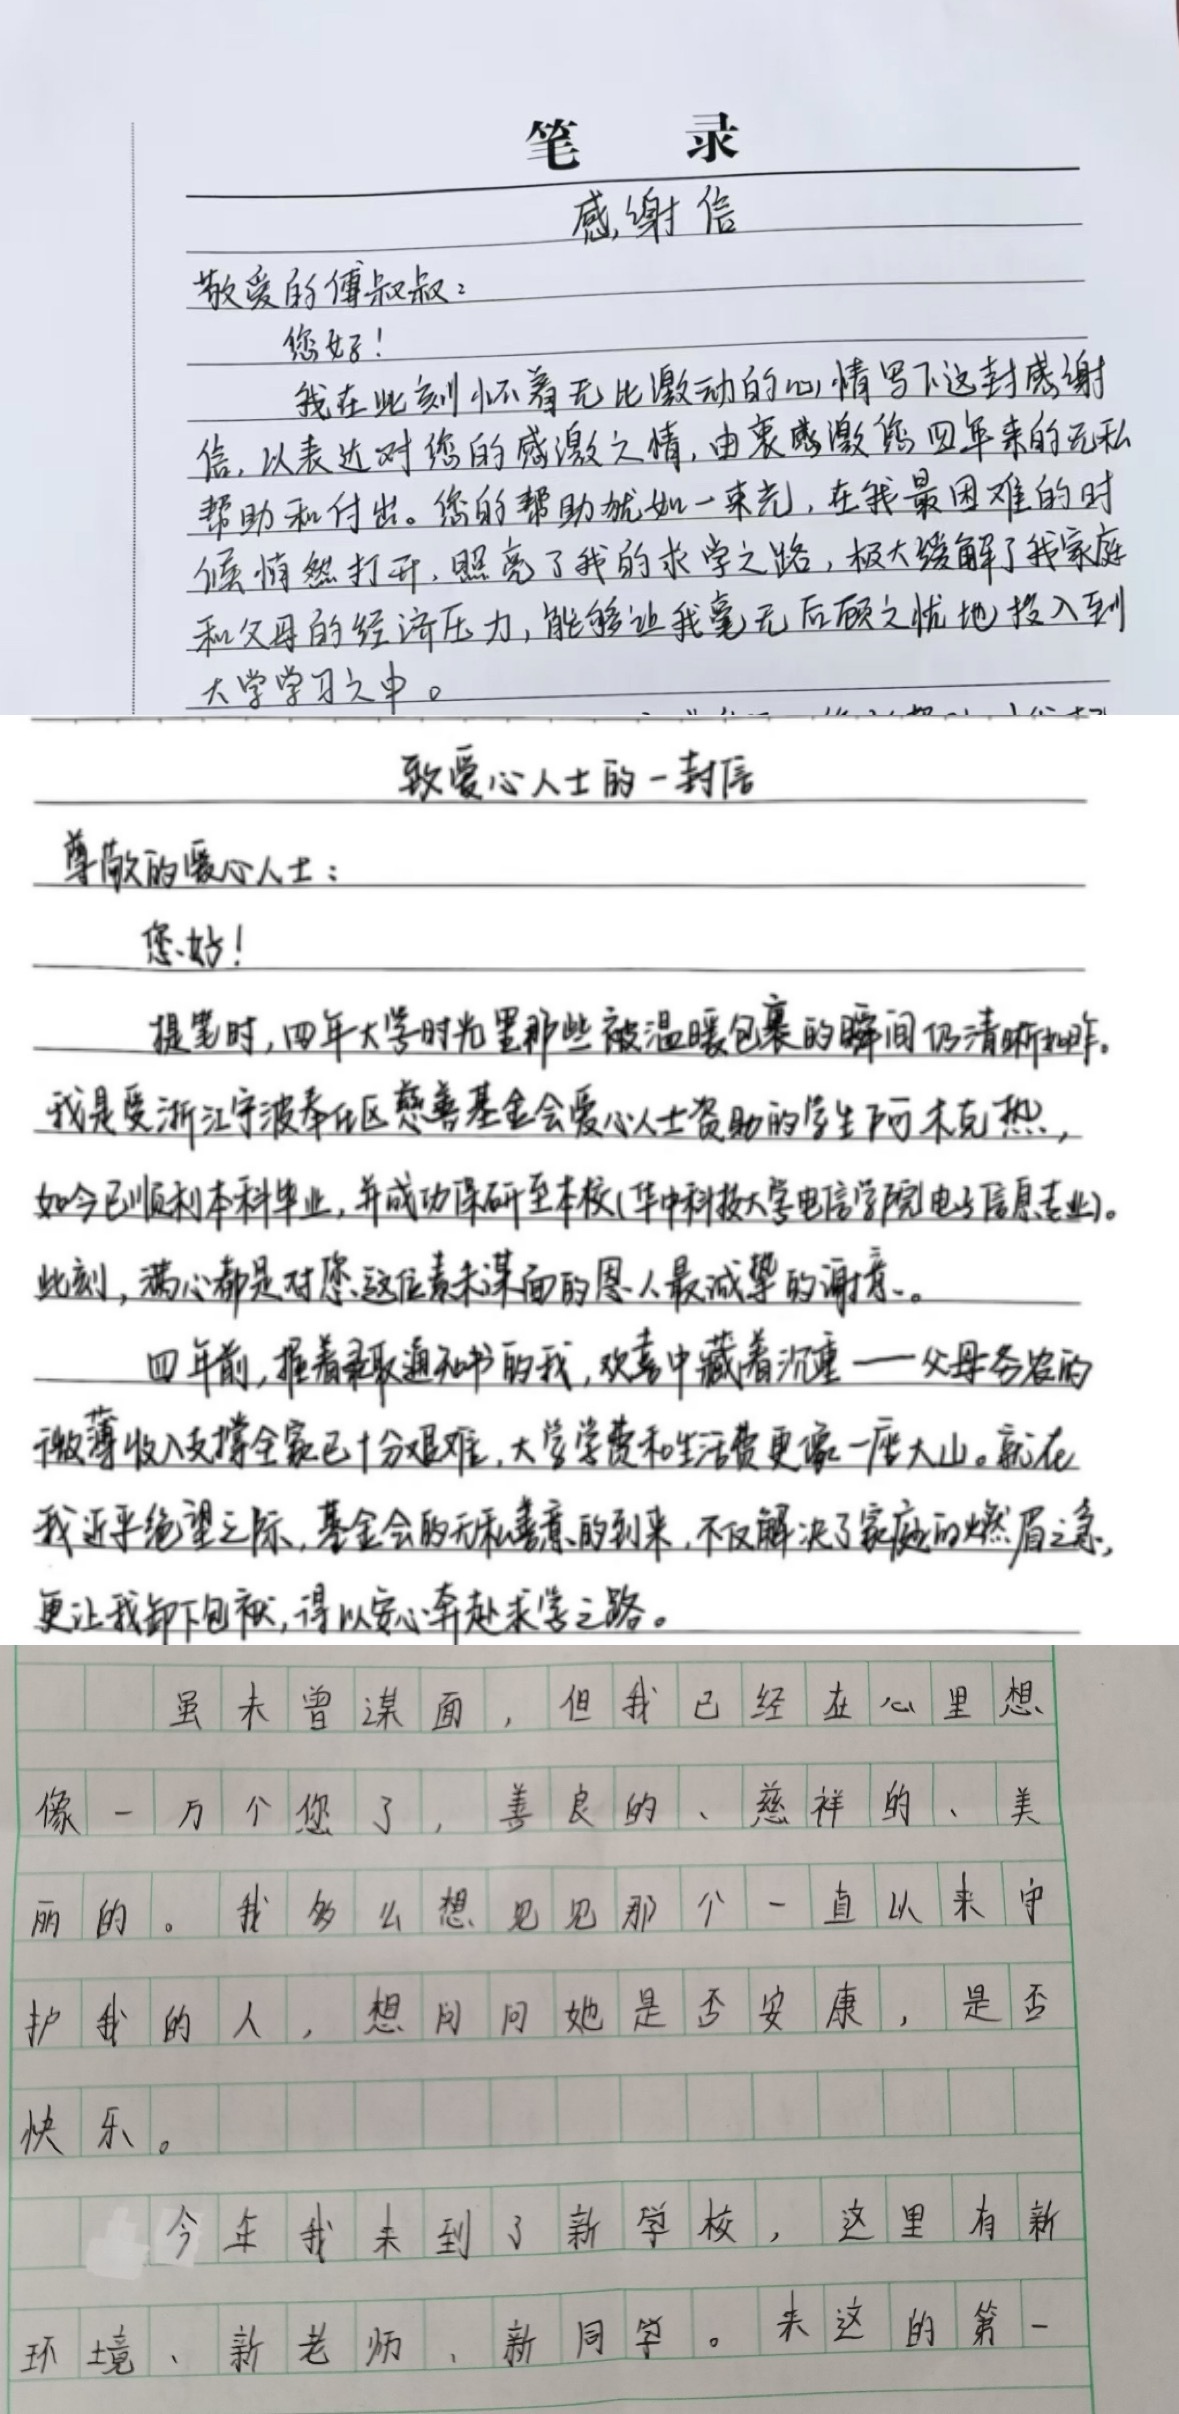 笔 录
感谢信
敬爱的傅叔叔：
您好！
我在此刻怀着无比激动的心情写下这封感谢
信，以表达对您的感激之情，由衷感激您四年来的无私
帮助和付出。您的帮助犹如一束光，在我最困难的时
候悄然打开，照亮了我的求学之路，极大缓解了我家庭
和父母的经济压力，能够让我毫无后顾之忧地投入到
大学学习之中。
致爱心人士的一封信
尊敬的爱心人士：
您好！
提笔时，四年大学时光里那些被温暖包裹的瞬间仍清晰如昨。
我是受浙江宁波奉化区慈善基金会爱心人士资助的学生阿木克热，
如今已顺利本科毕业，并成功保研至本校（华中科技大学电信学院电子信息专业）。
此刻，满心都是对您这位素未谋面的恩人最诚挚的谢意。
四年前，握着录取通知书的我，欢喜中藏着沉重——父母务农的
微薄收入支撑全家已十分艰难，大学学费和生活费更像一座大山。就在
我近乎绝望之际，基金会的无私善意的到来，不仅解决了家庭的燃眉之急，
更让我卸下包袱，得以安心奔赴求学之路。
虽未曾谋面，但我已经在心里想
像一万个您了，善良的、慈祥的、美
丽的。我多么想见见那个一直以来守
护我的人，想问问她是否安康，是否
快乐。
今年我来到了新学校，这里有新
环境、新老师、新同学。来这的第一